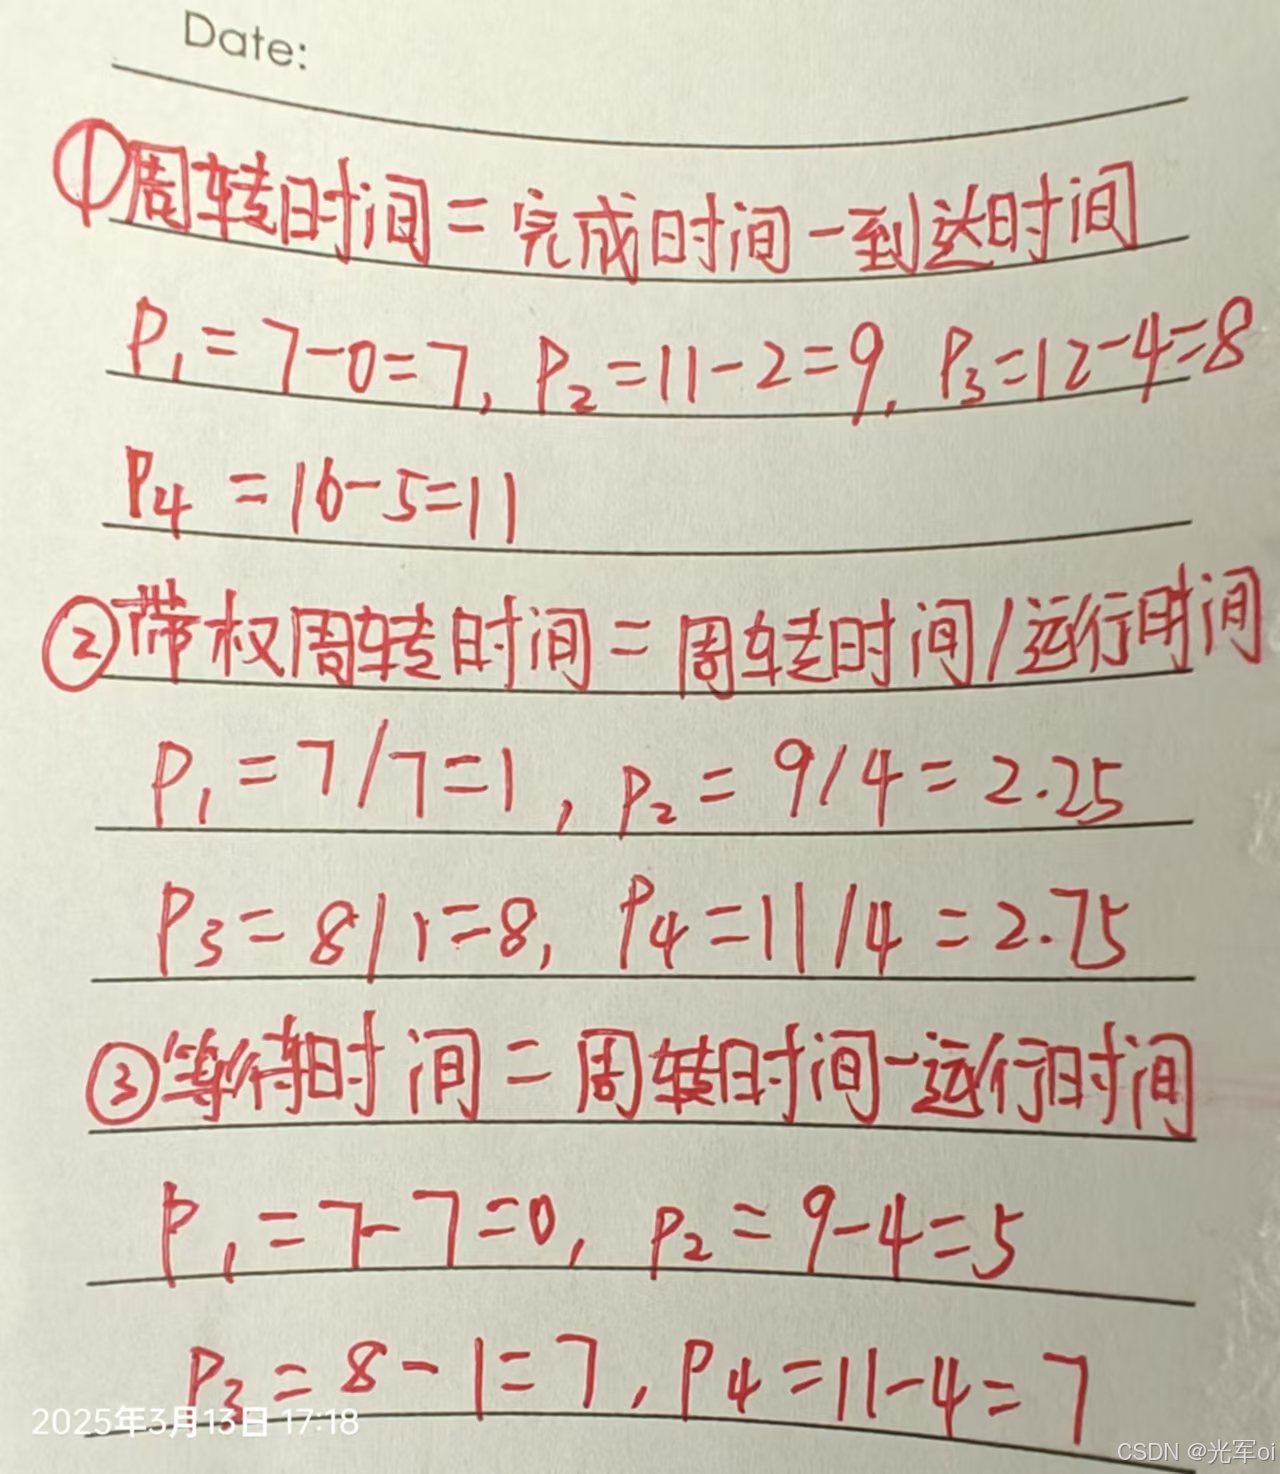 Date:
①周转时间=完成时间-到达时间
P₁=7-0=7, P₂=11-2=9, P₃=12-4=8
P₄=16-5=11
②带权周转时间=周转时间/运行时间
P₁=7/7=1, P₂=9/4=2.25
P₃=8/1=8, P₄=11/4=2.75
③等待时间=周转时间-运行时间
P₁=7-7=0, P₂=9-4=5
P₃=8-1=7, P₄=11-4=7
2025年3月13日 17:18
CSDN @光军oi